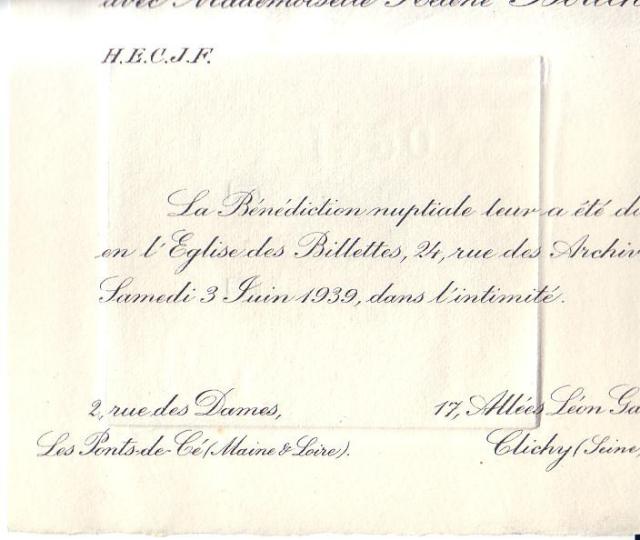 avec Mademoiselle Hélène
H.E.C.J.F.
La Bénédiction nuptiale leur a été
en l'Eglise des Billettes, 24, rue des Archiv
Samedi 3 Juin 1939, dans l'intimité.
2, rue des Dames,
17, Allées Léon Ga
Les Ponts-de-Cé (Maine & Loire).
Clichy (Seine)